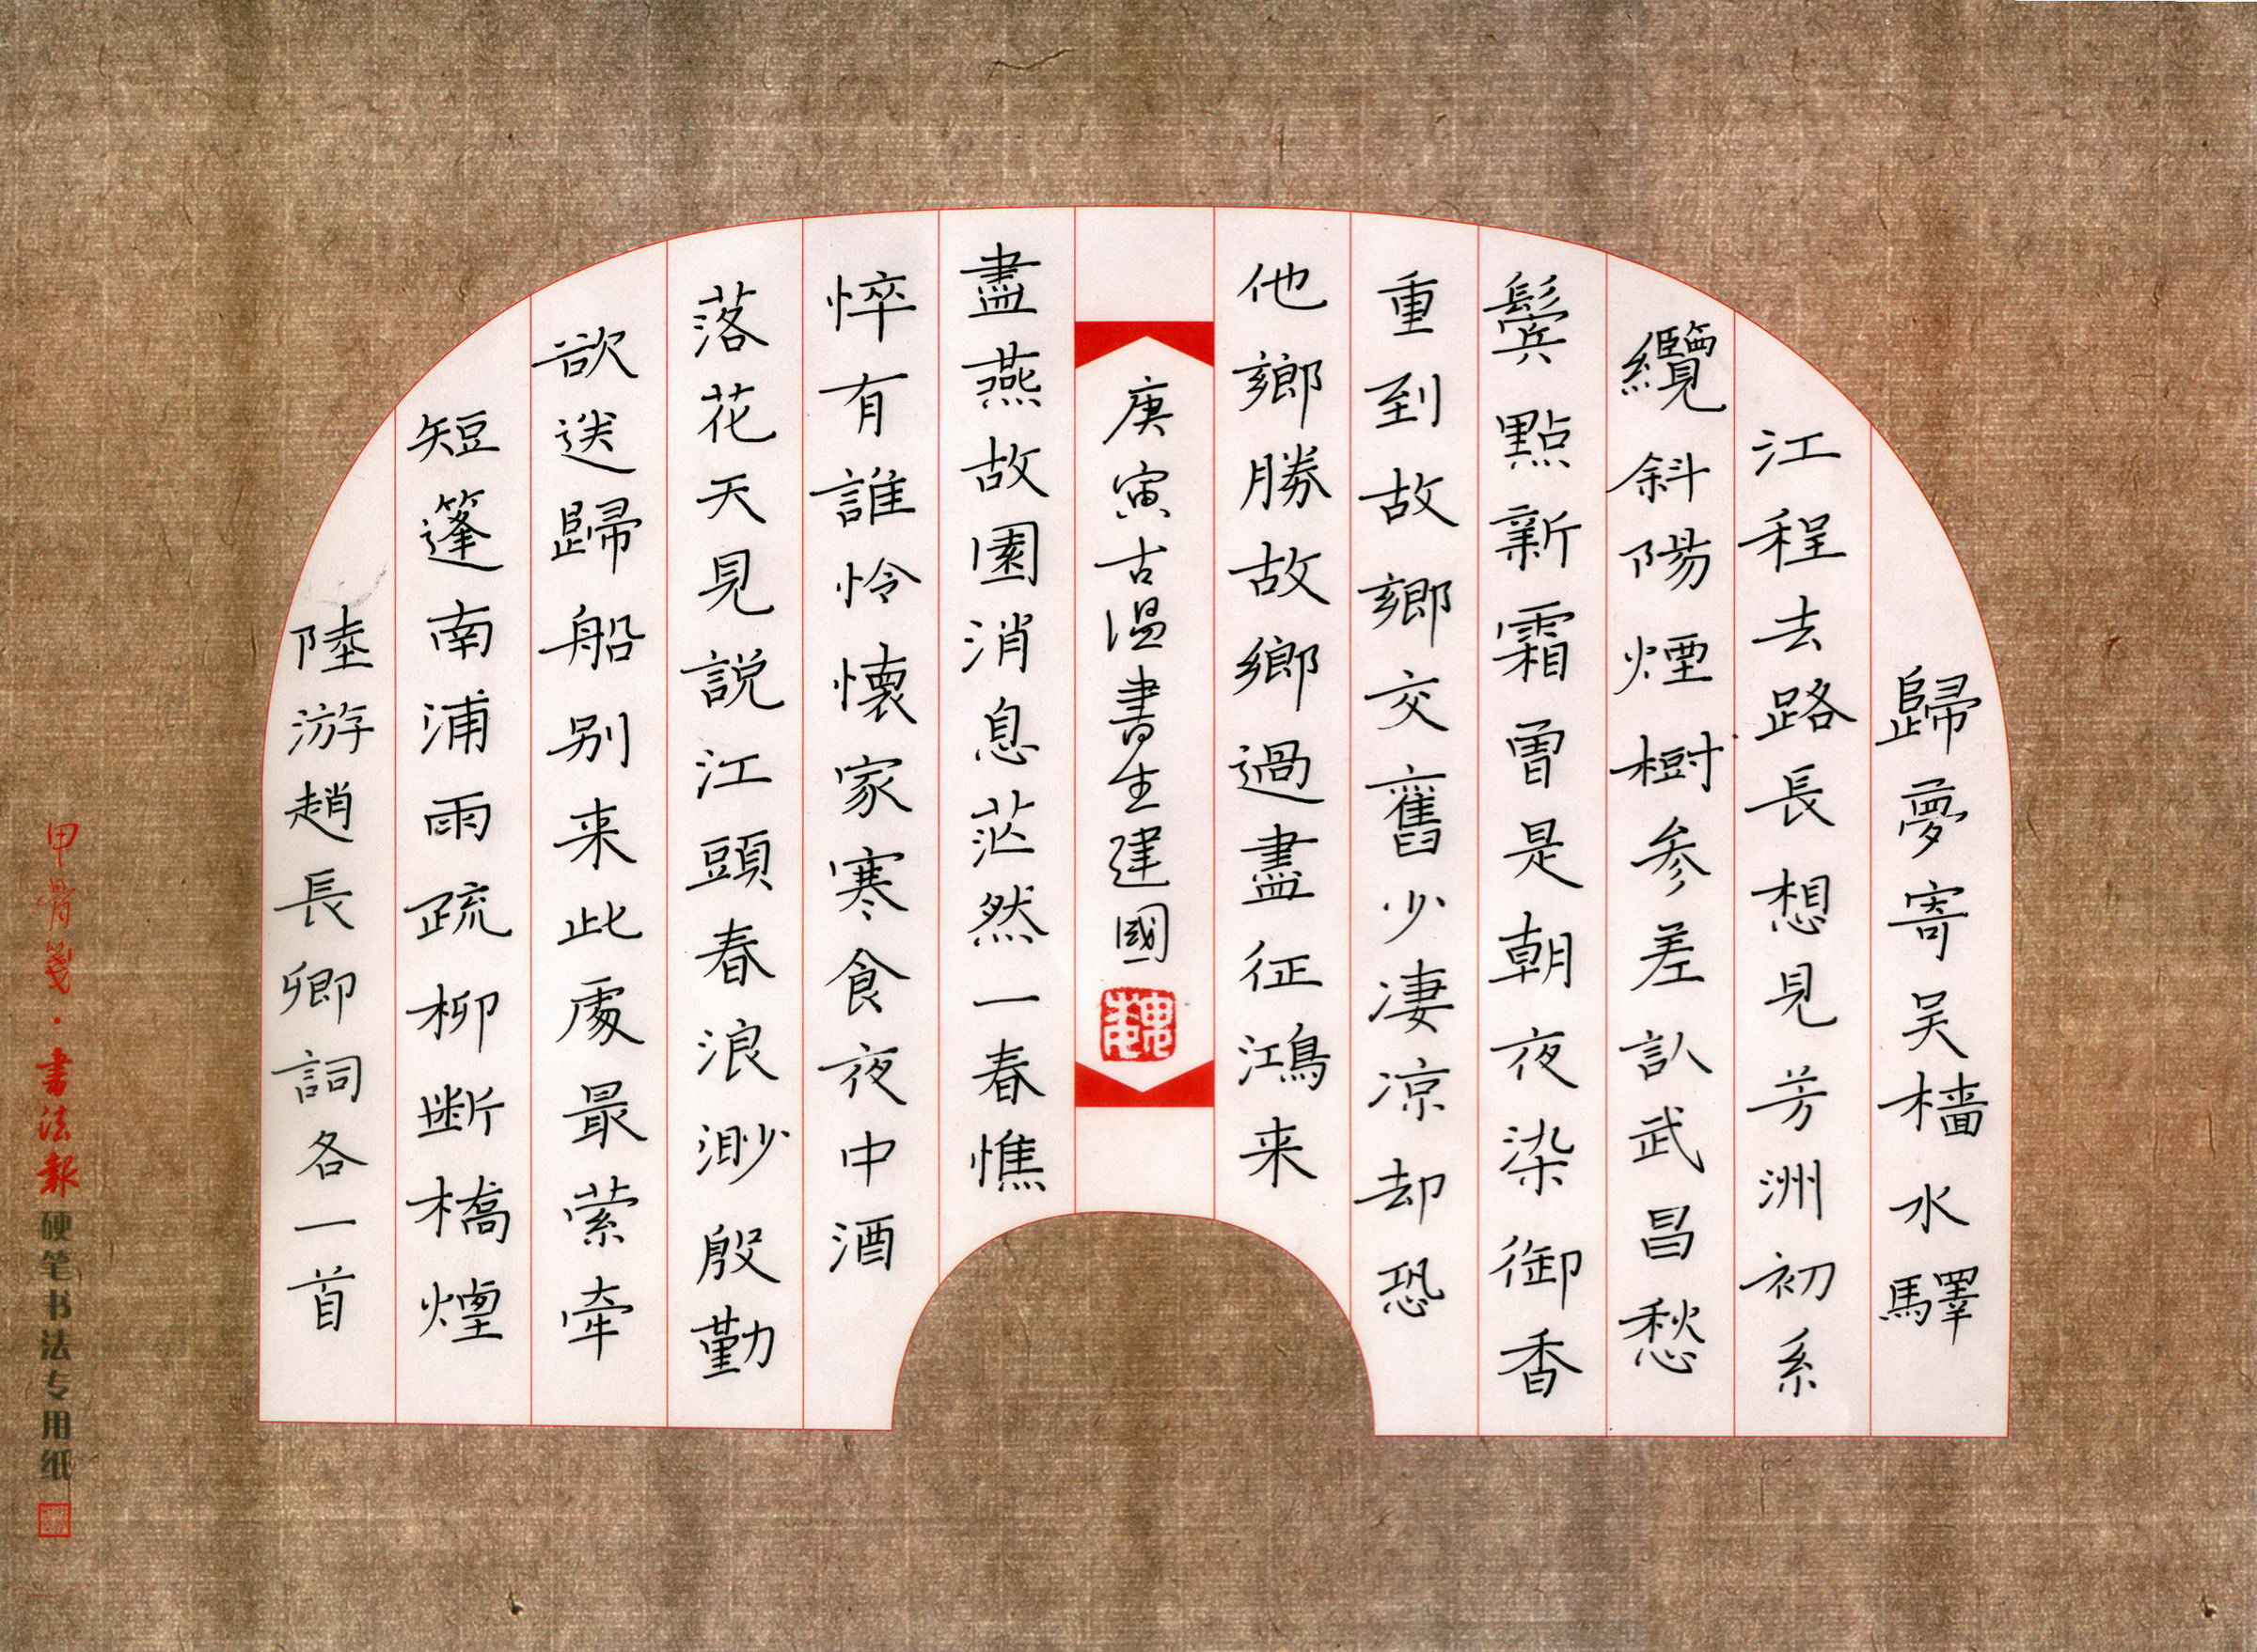 歸夢寄吴檣水驛
江程去路長想見芳洲初系
纜斜陽煙樹参差認武昌愁
鬓點新霜曾是朝夜染御香
重到故鄉交舊少凄凉却恐
他鄉勝故鄉過盡征鴻来
庚寅古温書生建國
盡燕故園消息茫然一春憔
悴有誰怜懷家寒食夜中酒
落花天見説江頭春浪渺殷勤
欲送歸船别来此處最萦牵
短篷南浦雨疏柳断橋煙
陸游趙長卿詞各一首
甲骨箋·書法報硬笔书法专用纸